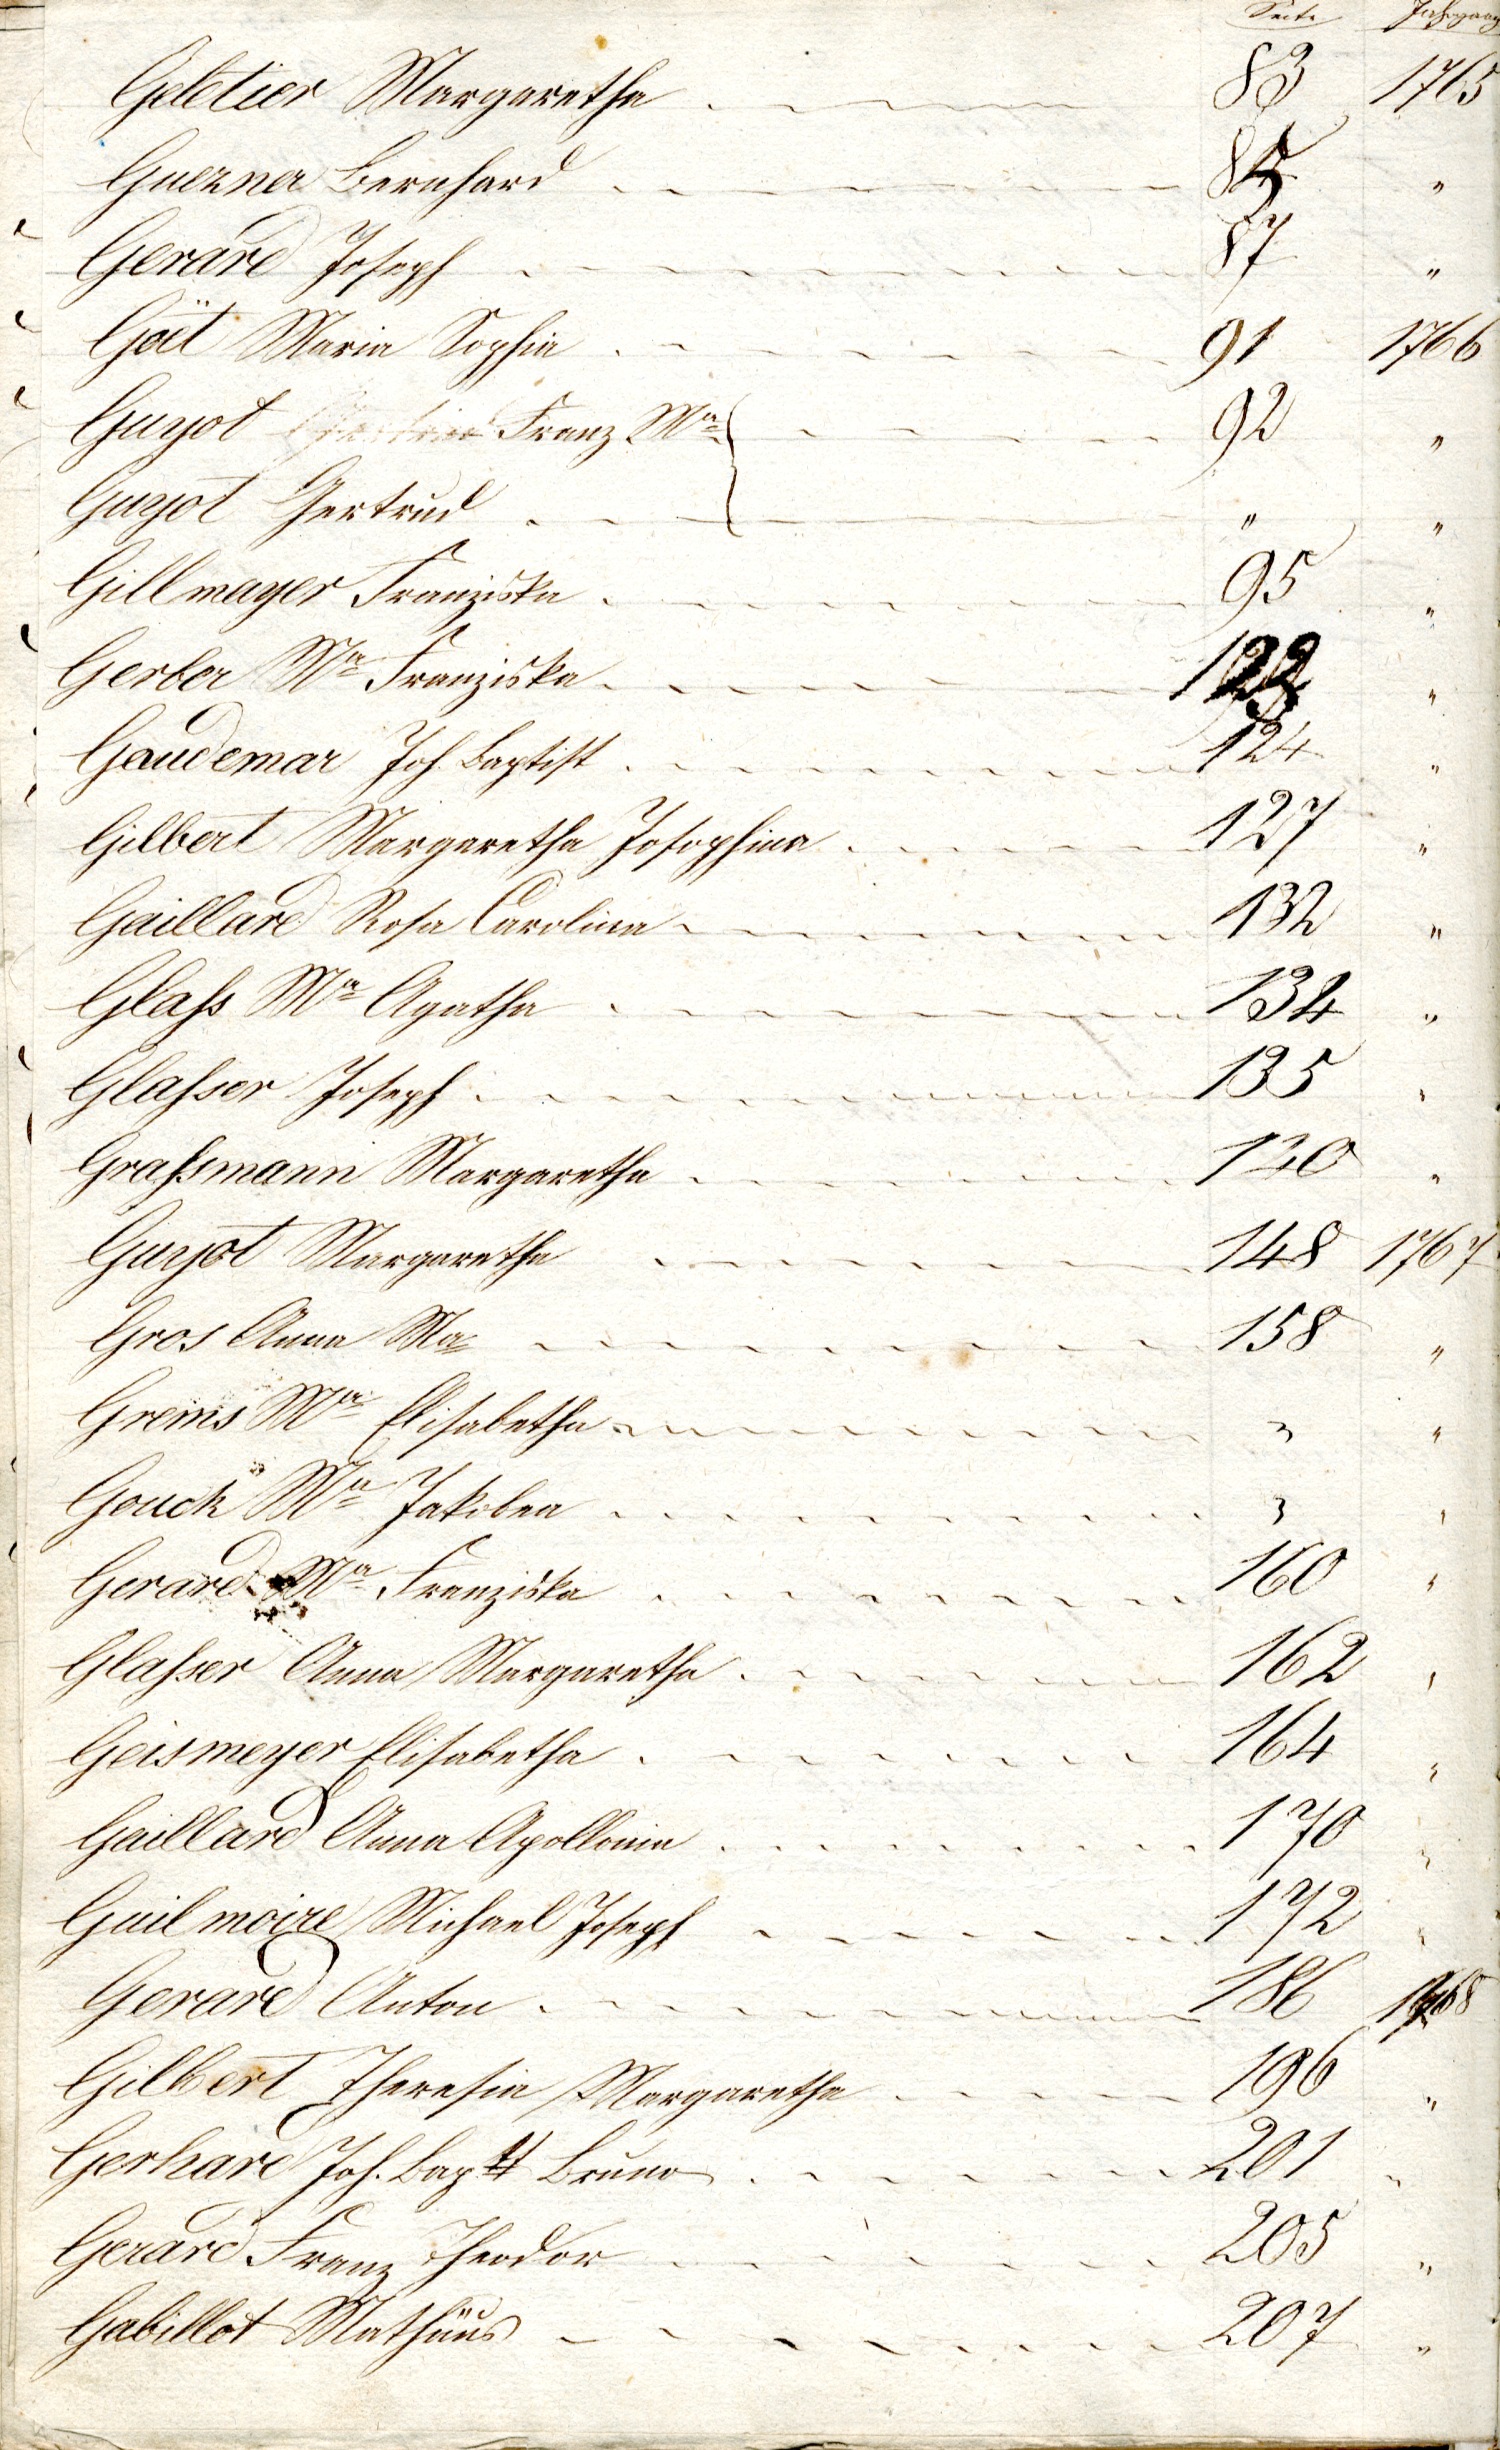 Seite Jahrgang
Geletier Margaretha 83 1765
Guerner Bernhard 85 "
Gerard Joseph 87 "
Göet Maria Sophia 91 1766
Guyot Franz Ma 92 "
Guyot Gertrud " "
Gillmayer Franziska 95 "
Gerber Ma Franziska 122 "
Gaudemar Joh. Baptist 124 "
Gilbert Margaretha Josephina 127 "
Gaillard Rosa Carolina 132 "
Glaß Ma Agatha 134 "
Glaßer Joseph 135 "
Graßmann Margaretha 140 "
Guyot Margaretha 148 1767
Gros Anna Ma 158 "
Ma Elisabetha " "
Gouck Ma Jakobea " "
Gerard Ma Franziska 160 "
Glaßer Anna Margaretha 162 "
Geismeyer Elisabetha 164 "
Gaillard Anna Apollonia 170 "
Guilmoire Michael Joseph 172 "
Gerard Anton 186 1768
Gilbert Theresia Margaretha 196 "
Gerhard Joh. Baptt Bruno 201 "
Gerard Franz Theodor 205 "
Gabillot Mathäus 207 "